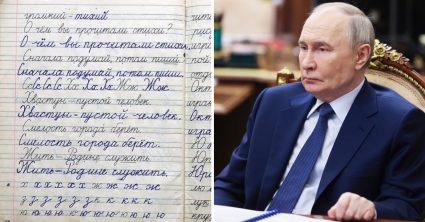 громкий-тихий
О чём вы прочитали стихи?
О чём вы прочитали стихи
Сначала подумай, потом пиши
Сначала подумай, потом пиши.
Со Со Со Ха Ха Ха Жж Жж
Хвастун - пустой человек.
Хвастун - пустой человек.
Смелость города берёт.
Смелость города берёт.
Жить - Родине служить.
Жить - Родине служить.
х х х х х х ж ж ж ж
з з з з з з к к к к
ю ю ю ю ю ю ю ю